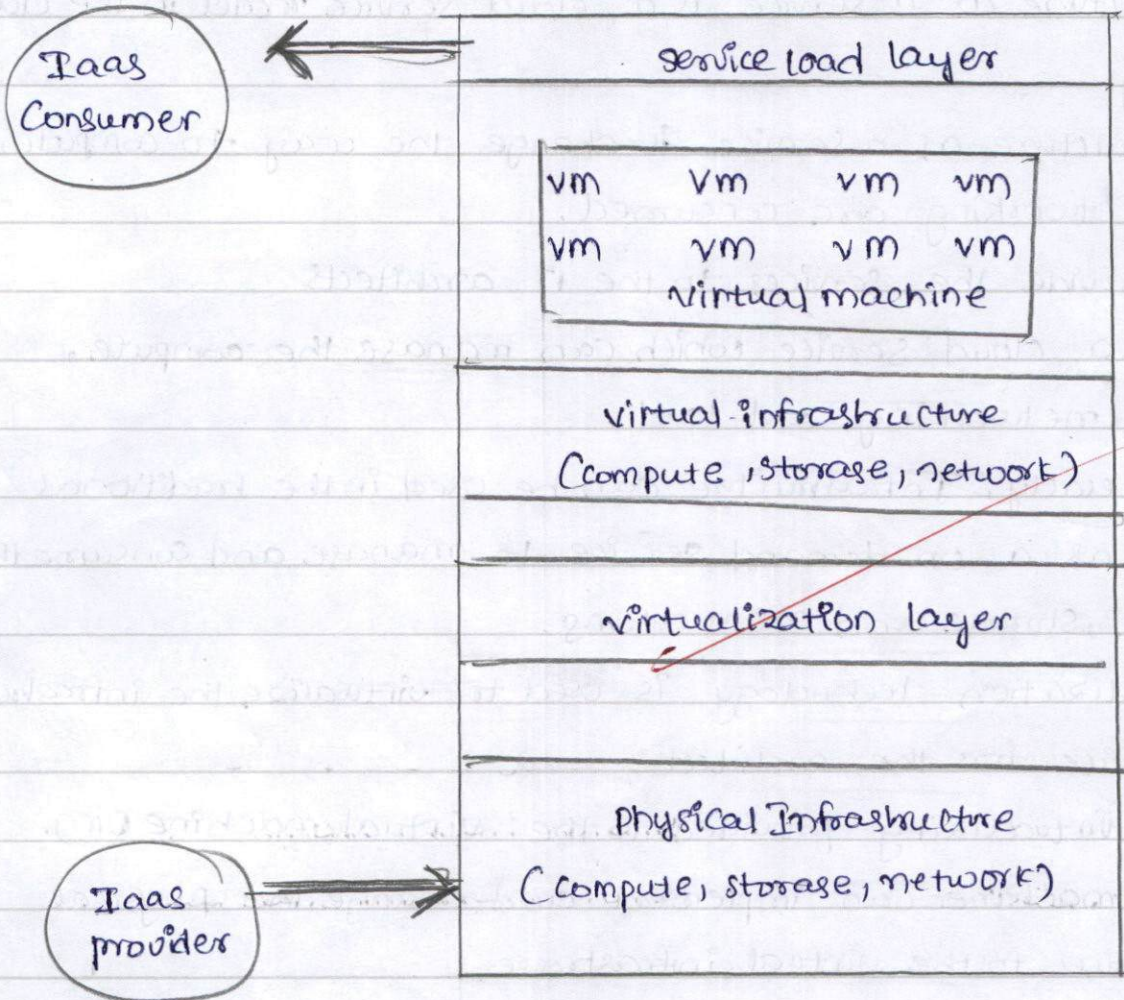 Iaas
Consumer
service load layer
vm vm vm vm
vm vm vm vm
virtual machine
virtual infrastructure
(compute, storage, network)
virtualization layer
Physical Infrastructure
(compute, storage, network)
Iaas
provider